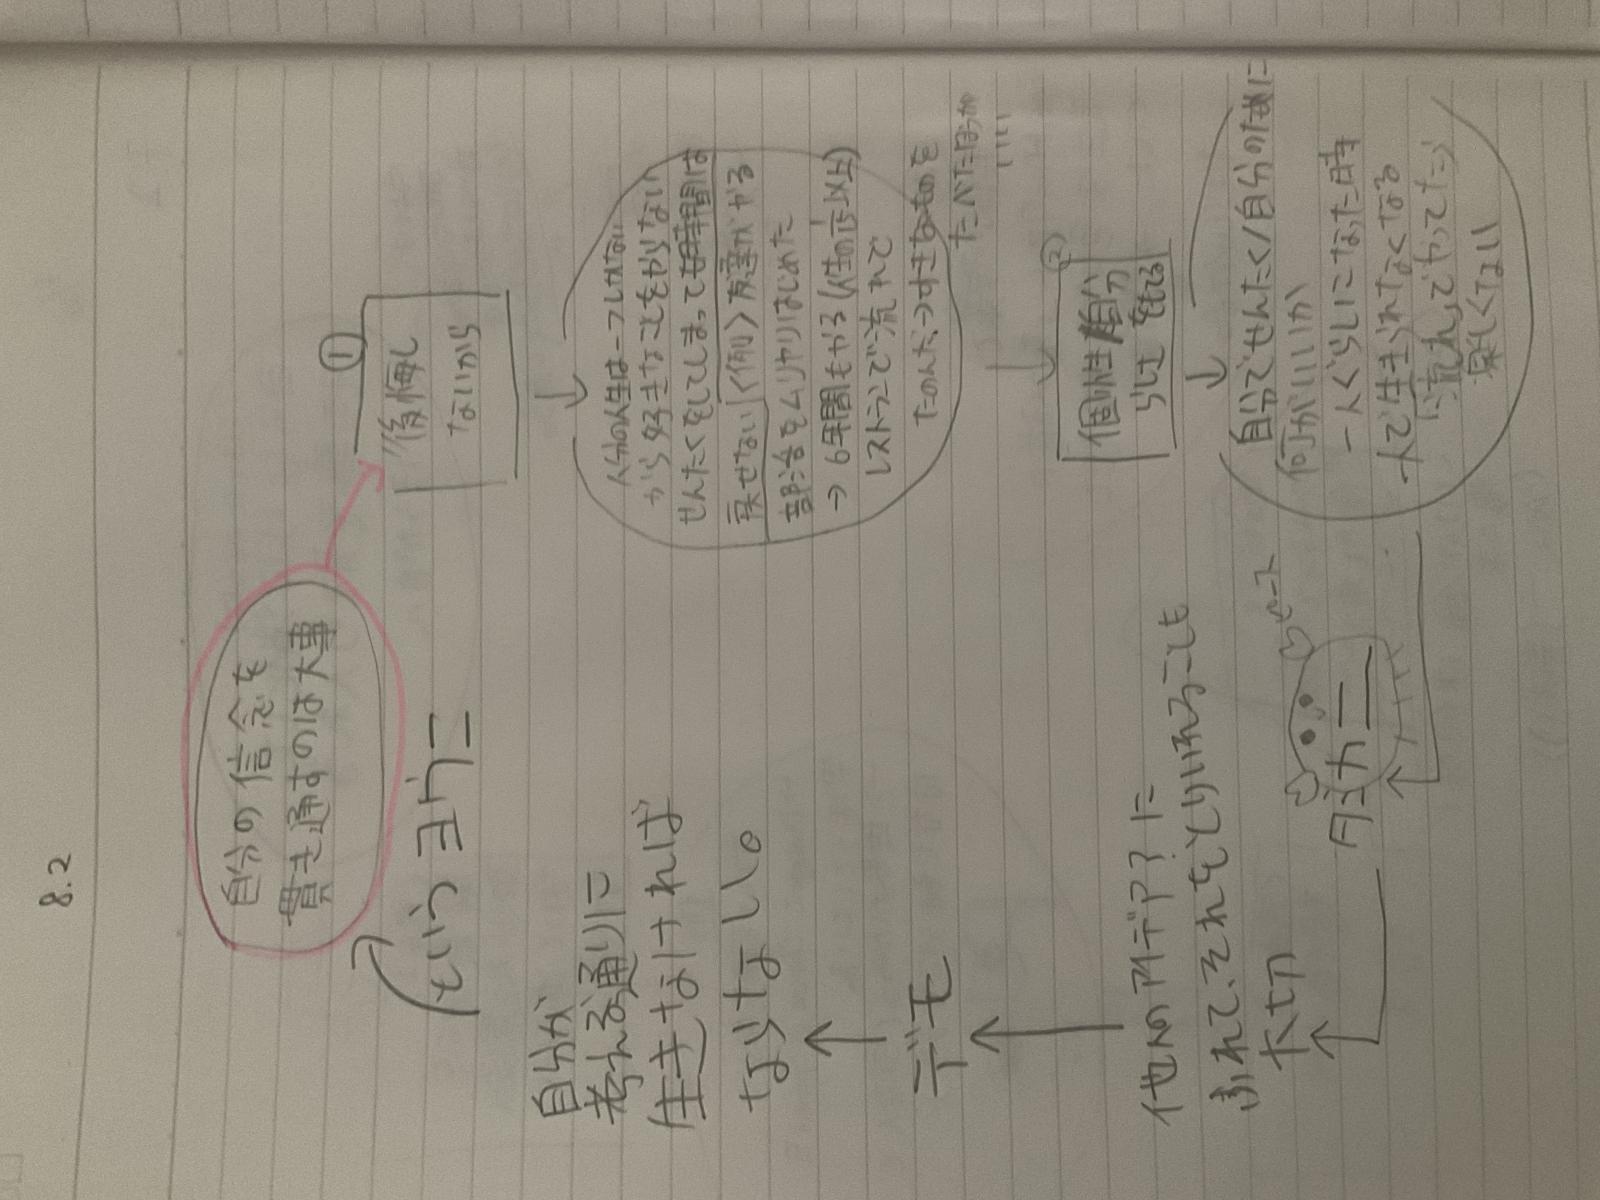 8.2
自分の信念を
貫き通すのは大事
①
後悔し
ないから
自分の人生は一つしかない
から好きなことをやらない
せんたくをしてしまって毎時間は
戻せない <例> 友達がやる
部活をムリヤリはじめた
→ 6年間もやる(人生の 以上)
レストランで流れで
たのんだ→すきなものを
たべたほうが
いい
②
個性/自分
らしさ をもてる
自分でせんたく/自分のために
何がいいか
一人ぐらしになった時
一人で生きれなくなる
流れでやってたら
楽しくない
というヨウニ
自分が
考える通りに
生きなければ
ならなし。
デモ
他人のアイデアに
ふれて、それをとりいれることも
大切
タシカニ
ベース